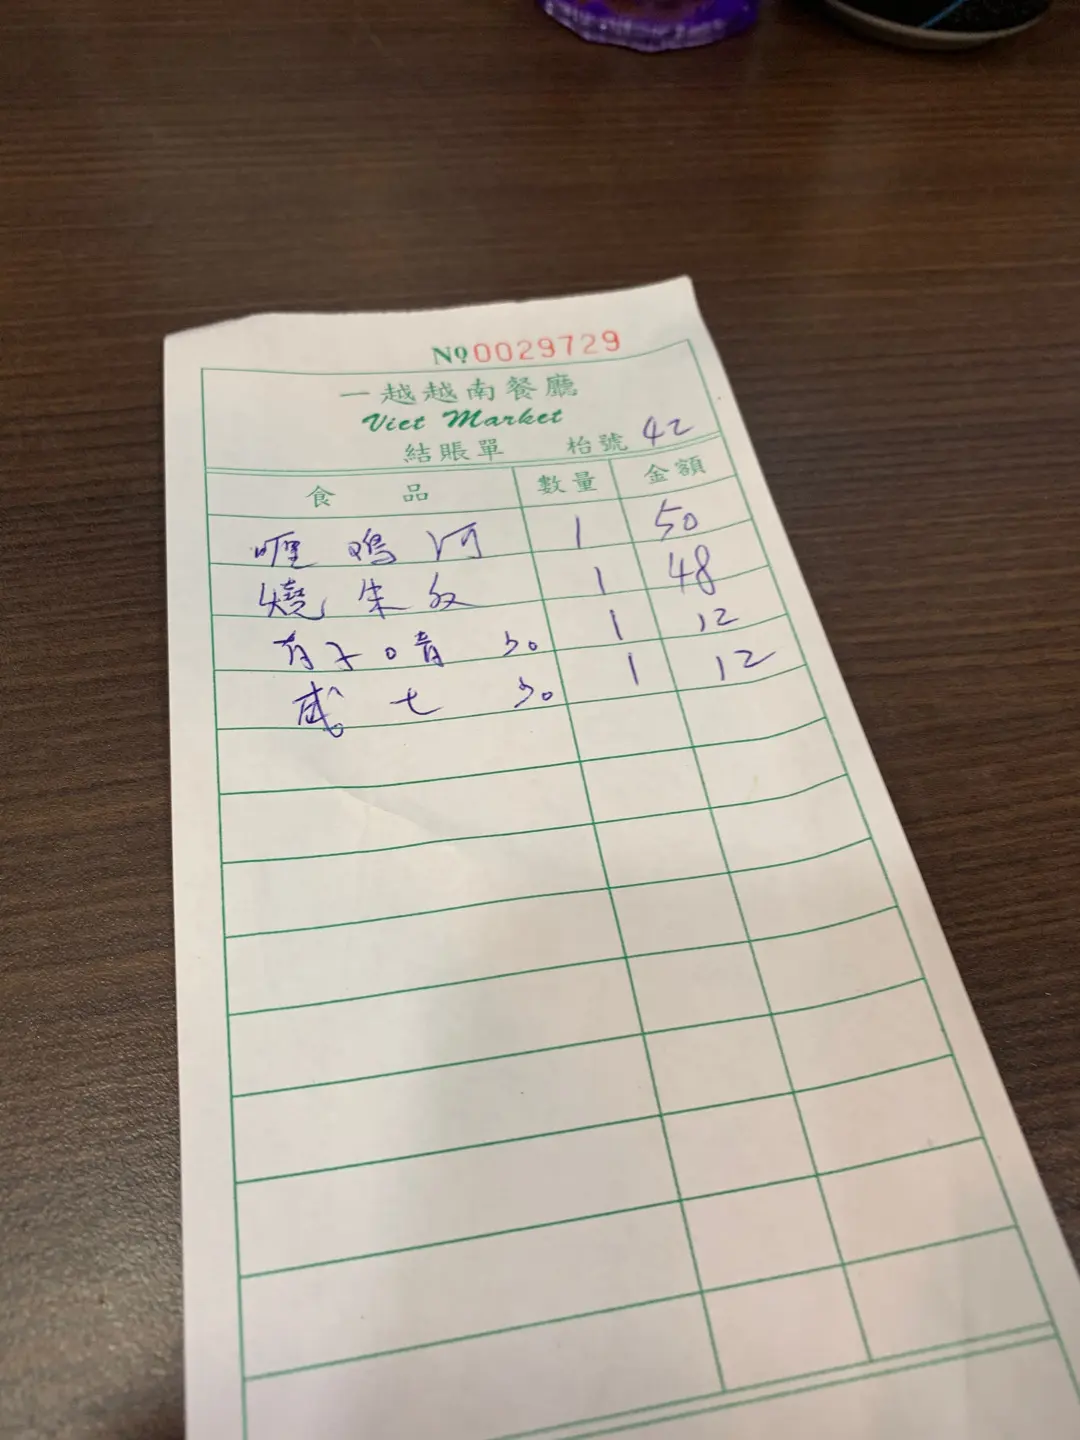 No 0029729
一越越南餐廳
Viet Market
結賬單 枱號 42
食品 數量 金額
喱鳴河 1 50
燒朱 1 48
1 12
咸七 1 12